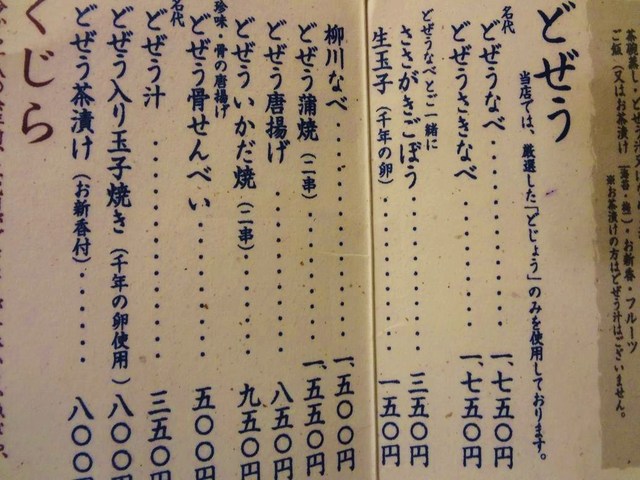 ご飯（又はお茶漬け
※お茶漬けの方はどぜう汁はございません。
どぜう
当店では、厳選した「どじょう」のみを使用しております。
名代
どぜうなべ・・・・・・・・・一、七五〇円
どぜうさきなべ・・・・・・・一、七五〇円
どぜうなべとご一緒に
ささがきごぼう・・・・・・・三五〇円
生玉子（千年の卵）・・・・・・一五〇円
柳川なべ・・・・・・・・・・一、五〇〇円
どぜう蒲焼（二串）・・・・・・一、五五〇円
どぜう唐揚げ・・・・・・・・八五〇円
どぜういかだ焼（二串）・・・・九五〇円
珍味・骨の唐揚げ
どぜう骨せんべい・・・・・・五〇〇円
名代
どぜう汁・・・・・・・・・・三五〇円
どぜう入り玉子焼き（千年の卵使用）八〇〇円
どぜう茶漬け（お新香付）・・・・八〇〇円
くじら